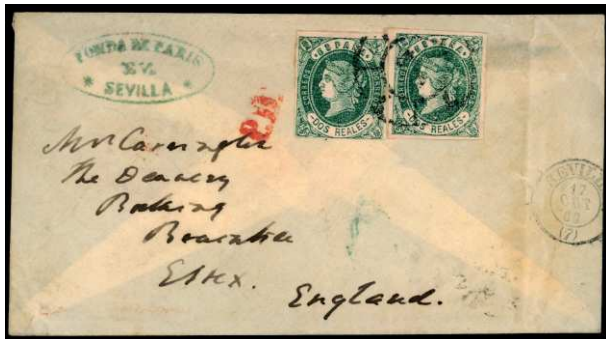 FONDA DE PARIS
EN
SEVILLA
ESPAÑA
CORREOS
DOS REALES
ESPAÑA
DOS REALES
P.D.
Mrs Carrington
The Deanery
Bocking
Braintree
Essex.
England.
SEVILLA
17
OCT
62
(7)